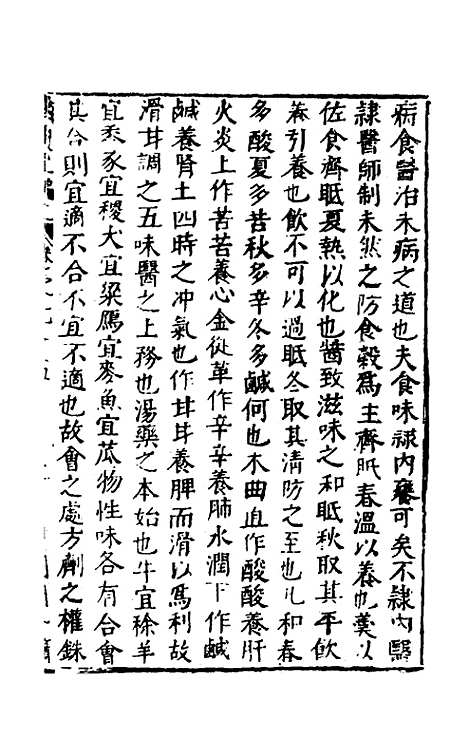 病食醫治未病之道也夫食味隸內饔可矣不隸內醫
隸醫師制未然之防食穀爲主齊眡春溫以養也羹以
佐食齊眡夏熱以化也醬致滋味之和眡秋取其平飲
養引養也飲不可以過眡冬取其清防之至也凡和春
多酸夏多苦秋多辛冬多鹹何也木曲直作酸酸養肝
火炎上作苦苦養心金從革作辛辛養肺水潤下作鹹
鹹養腎土四時之冲氣也作甘甘養脾而滑以爲利故
滑甘調之五味醫之上務也湯藥之本始也牛宜稌羊
宜黍豕宜稷犬宜粱鴈宜麥魚宜瓜物性味各有合會
其合則宜適不合不宜不適也故會之處方劑之權銖